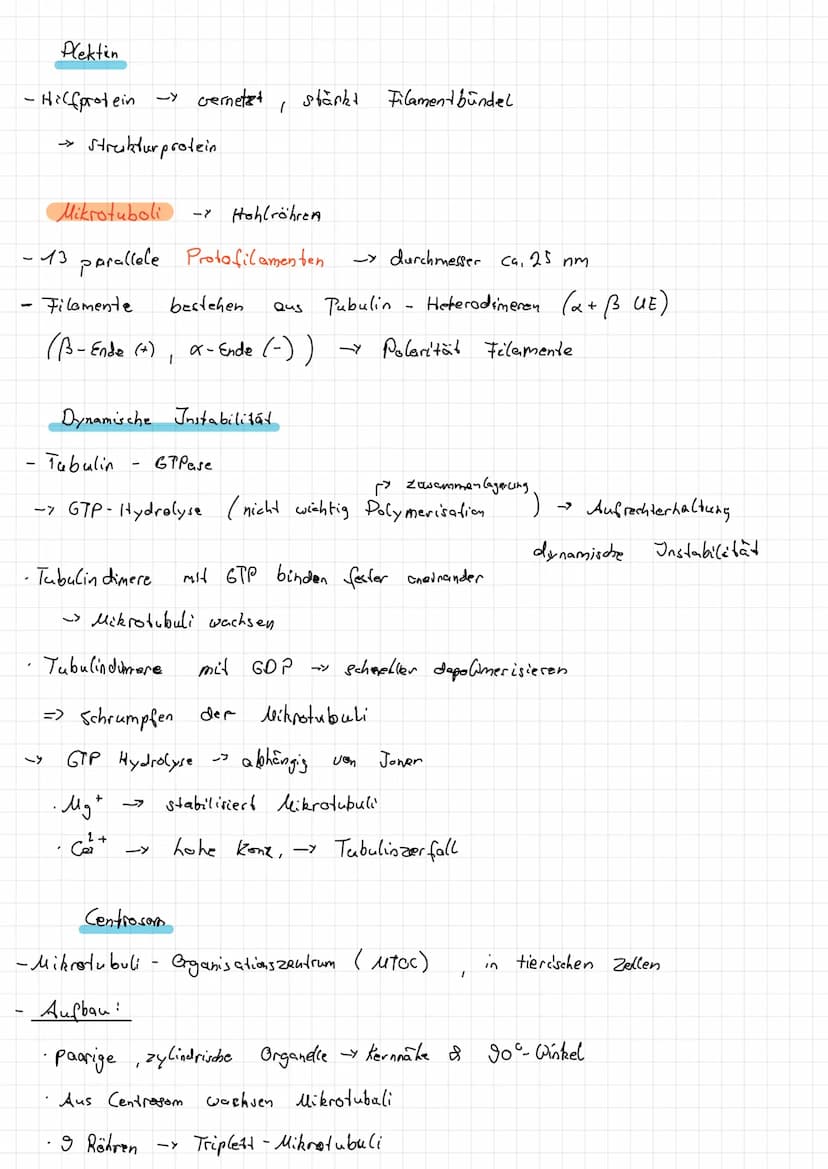 Plektin
- Hilfprotein → vernetzt, stärkt Filamentbündel
→ Strukturprotein
Mikrotuboli → Hohlröhren
- 13 parallele Protofilamenten → durchmesser ca. 25 nm
- Filamente bestehen aus Tubulin - Heterodimeren (α + β UE)
(β-Ende (+), α-Ende (-)) → Polarität Filamente
Dynamische Instabilität
- Tubulin - GTPase
→ Zusammenlagerung
→ GTP-Hydrolyse (nicht wichtig Polymerisation) → Aufrechterhaltung
dynamische Instabilität
· Tubulindimere mit GTP binden fester aneinander
→ Mikrotubuli wachsen
· Tubulindimere mit GDP → schneller depolimerisieren
=> Schrumpfen der Mikrotubuli
→ GTP Hydrolyse → abhängig von Jonen
· Mg⁺ → stabilisiert Mikrotubuli
· Ca²⁺ → hohe Konz. → Tubulinzerfall
Centrosom
- Mikrotubuli - Organisationszentrum (MTOC), in tierischen Zellen
- Aufbau:
· paarige, zylindrische Organelle → Kernnähe & 90°-Winkel
· Aus Centrosom wachsen Mikrotubali
· 9 Röhren → Triplett-Mikrotubuli